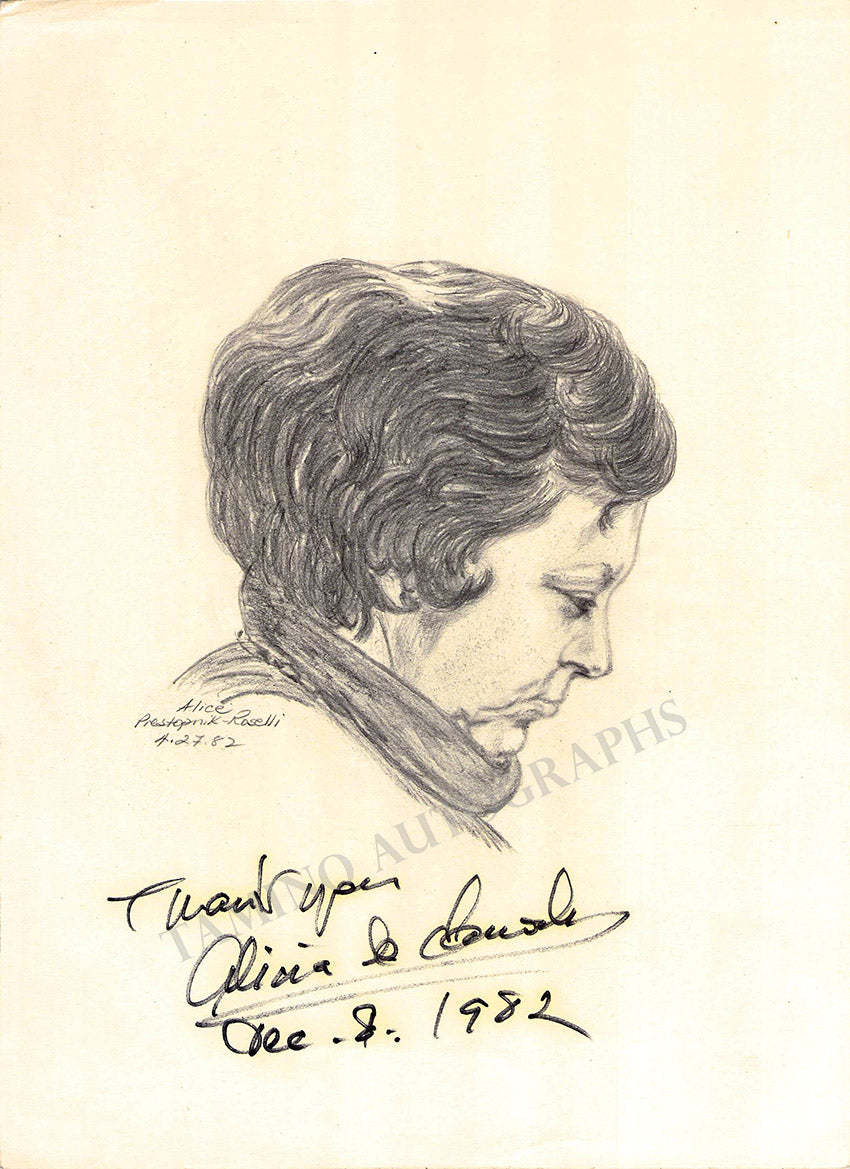 Alice
Prestopnik-Roselli
4.27.82
TAMINO AUTOGRAPHS
Thank you
Alicia de Larrocha
Dec. 8. 1982